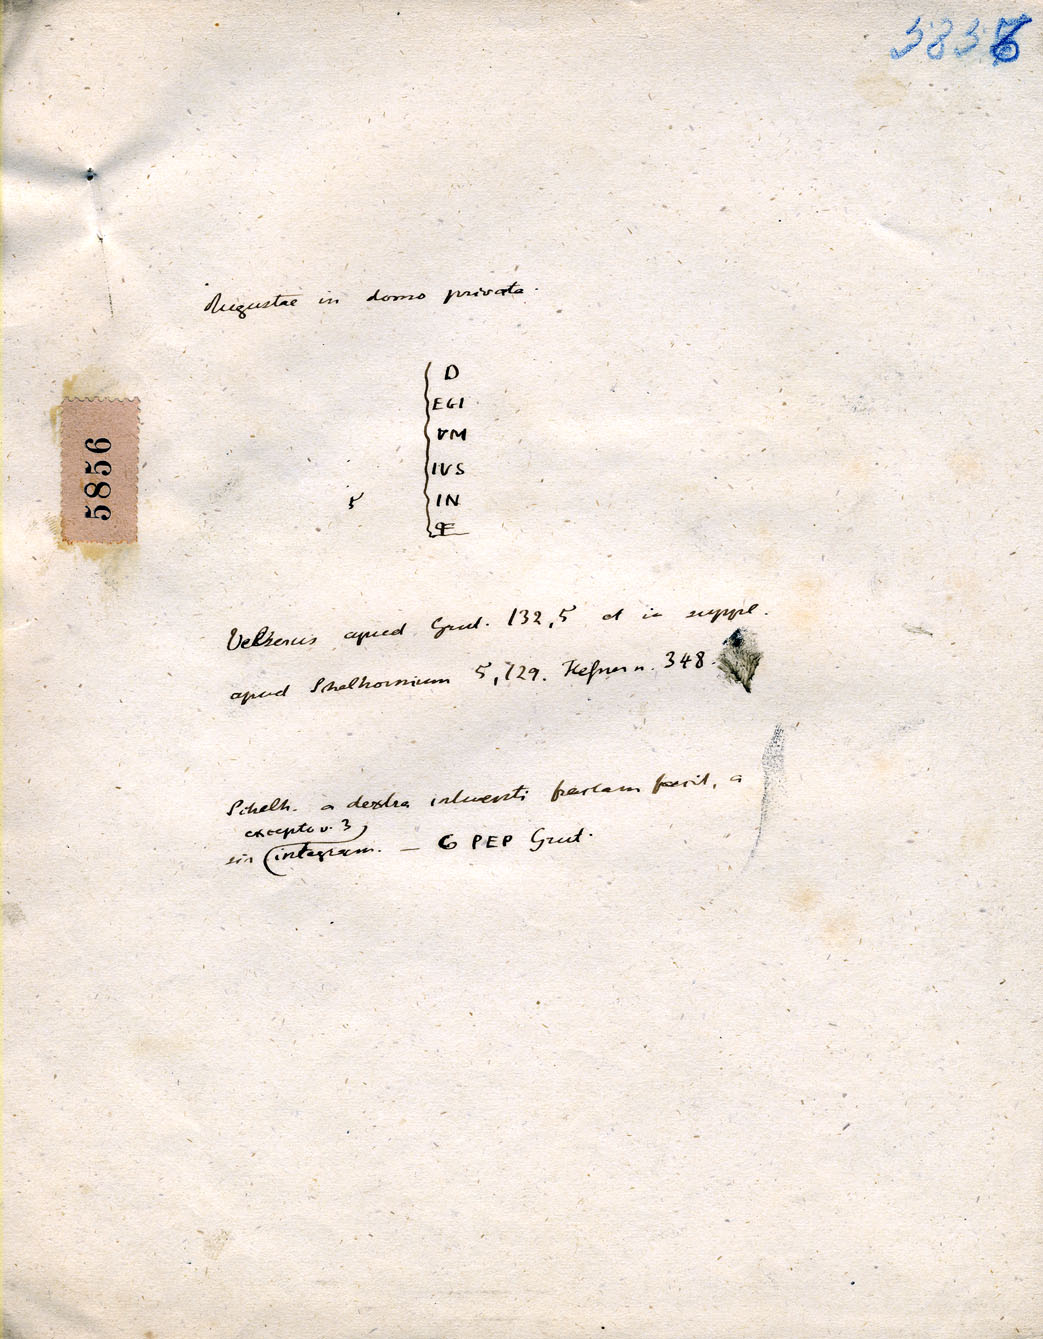 5856
Augustae in domo privata.
5856
D
EGI
VM
IVS
5 IN
PE
Velserus apud Grut. 132,5 et in suppl.
apud Schelhornium 5,129. Hefner n. 348.
Schelh. a dextra intuenti fractam facit, a
excepto v. 3
sin integram. — 6 PEP Grut.